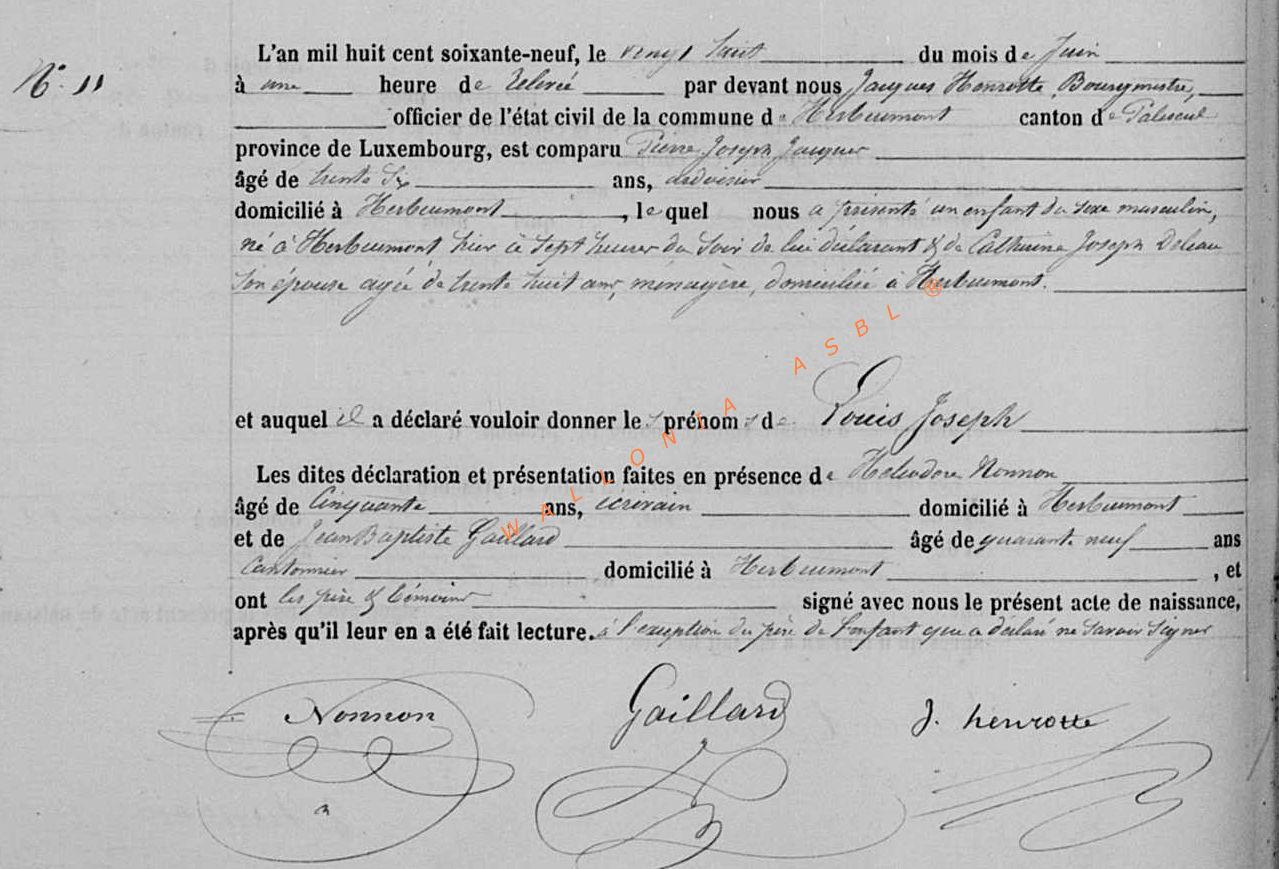 N° 11
L'an mil huit cent soixante-neuf, le vingt huit du mois de Juin
à une heure de relevée par devant nous Jacques Henrotte, Bourgmestre,
officier de l'état civil de la commune de Herbeumont canton de Paliseul
province de Luxembourg, est comparu Pierre Joseph Jacques
âgé de trente six ans, ardoisier
domicilié à Herbeumont, lequel nous a présenté un enfant du sexe masculin,
né à Herbeumont hier à sept heures du soir de lui déclarant & de Catherine Joseph
son épouse agée de trente huit ans, menagère, domiciliée à Herbeumont.
et auquel il a déclaré vouloir donner les prénoms de Louis Joseph
Les dites déclaration et présentation faites en présence de Heliodore Nonnon
âgé de Cinquante ans, écrivain domicilié à Herbeumont
et de Jean Baptiste Gaillard âgé de quarante neuf ans
Cantonnier domicilié à Herbeumont, et
ont les père & témoins signé avec nous le présent acte de naissance,
après qu'il leur en a été fait lecture. à l'exception du père de l'enfant qui a déclaré ne savoir signer
Nonnon Gaillard J. henrotte
WALLONIA ASBL ®